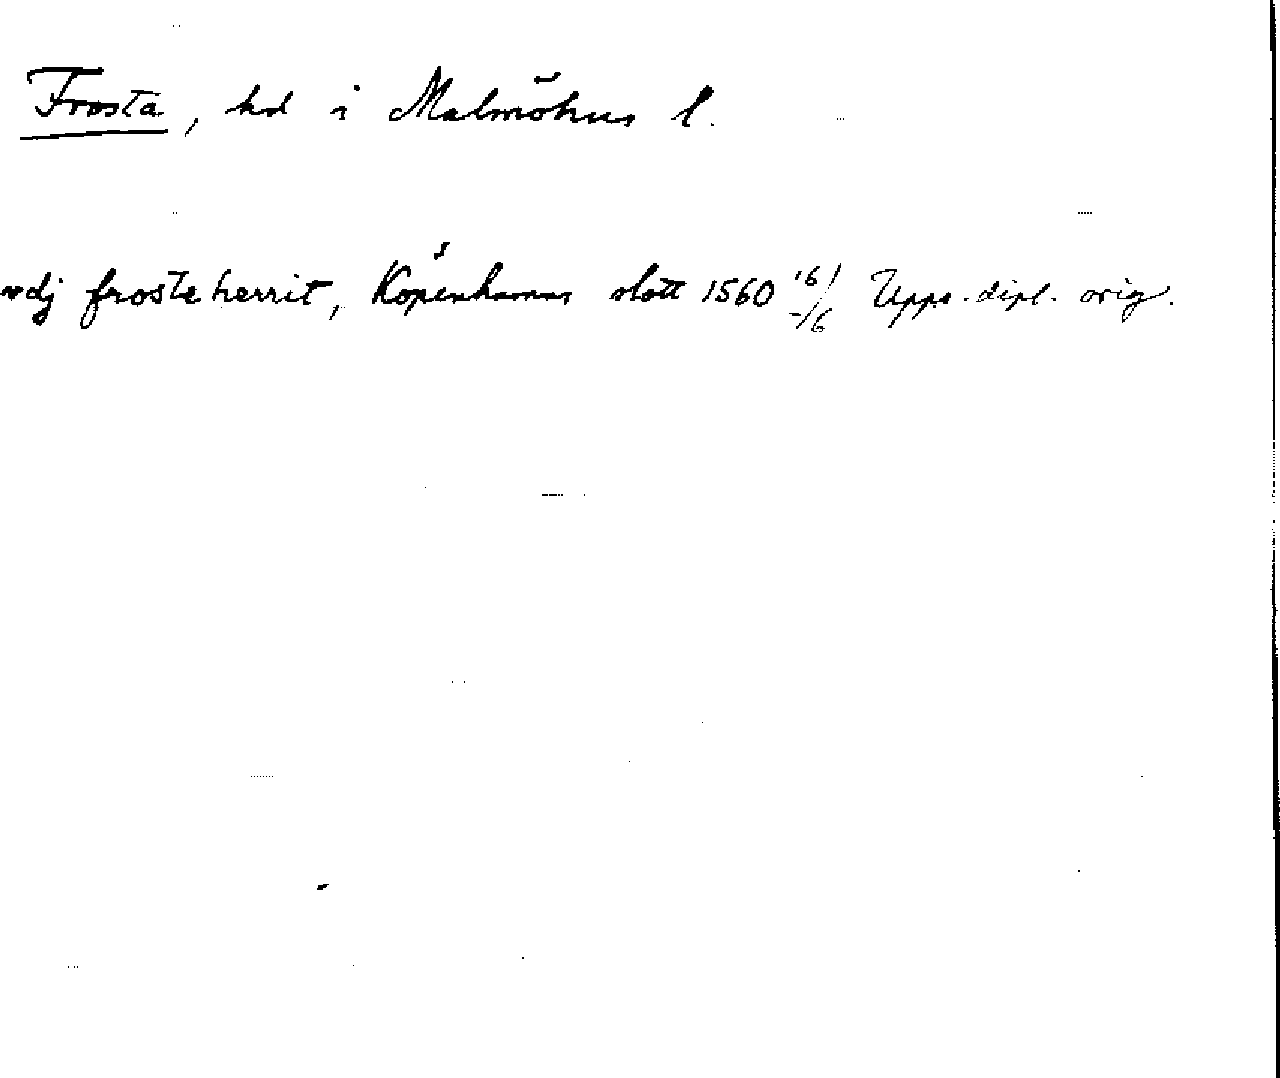 Frosta, hd i Malmöhus l.
vdj froste herrit, Köpenhamns slott 1560 16/6 Upps. dipl. orig.